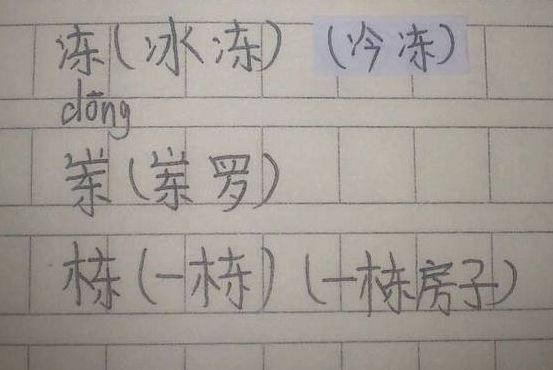 冻(冰冻) (冷冻)
dōng
崬(崬罗)
栋(一栋) (一栋房子)